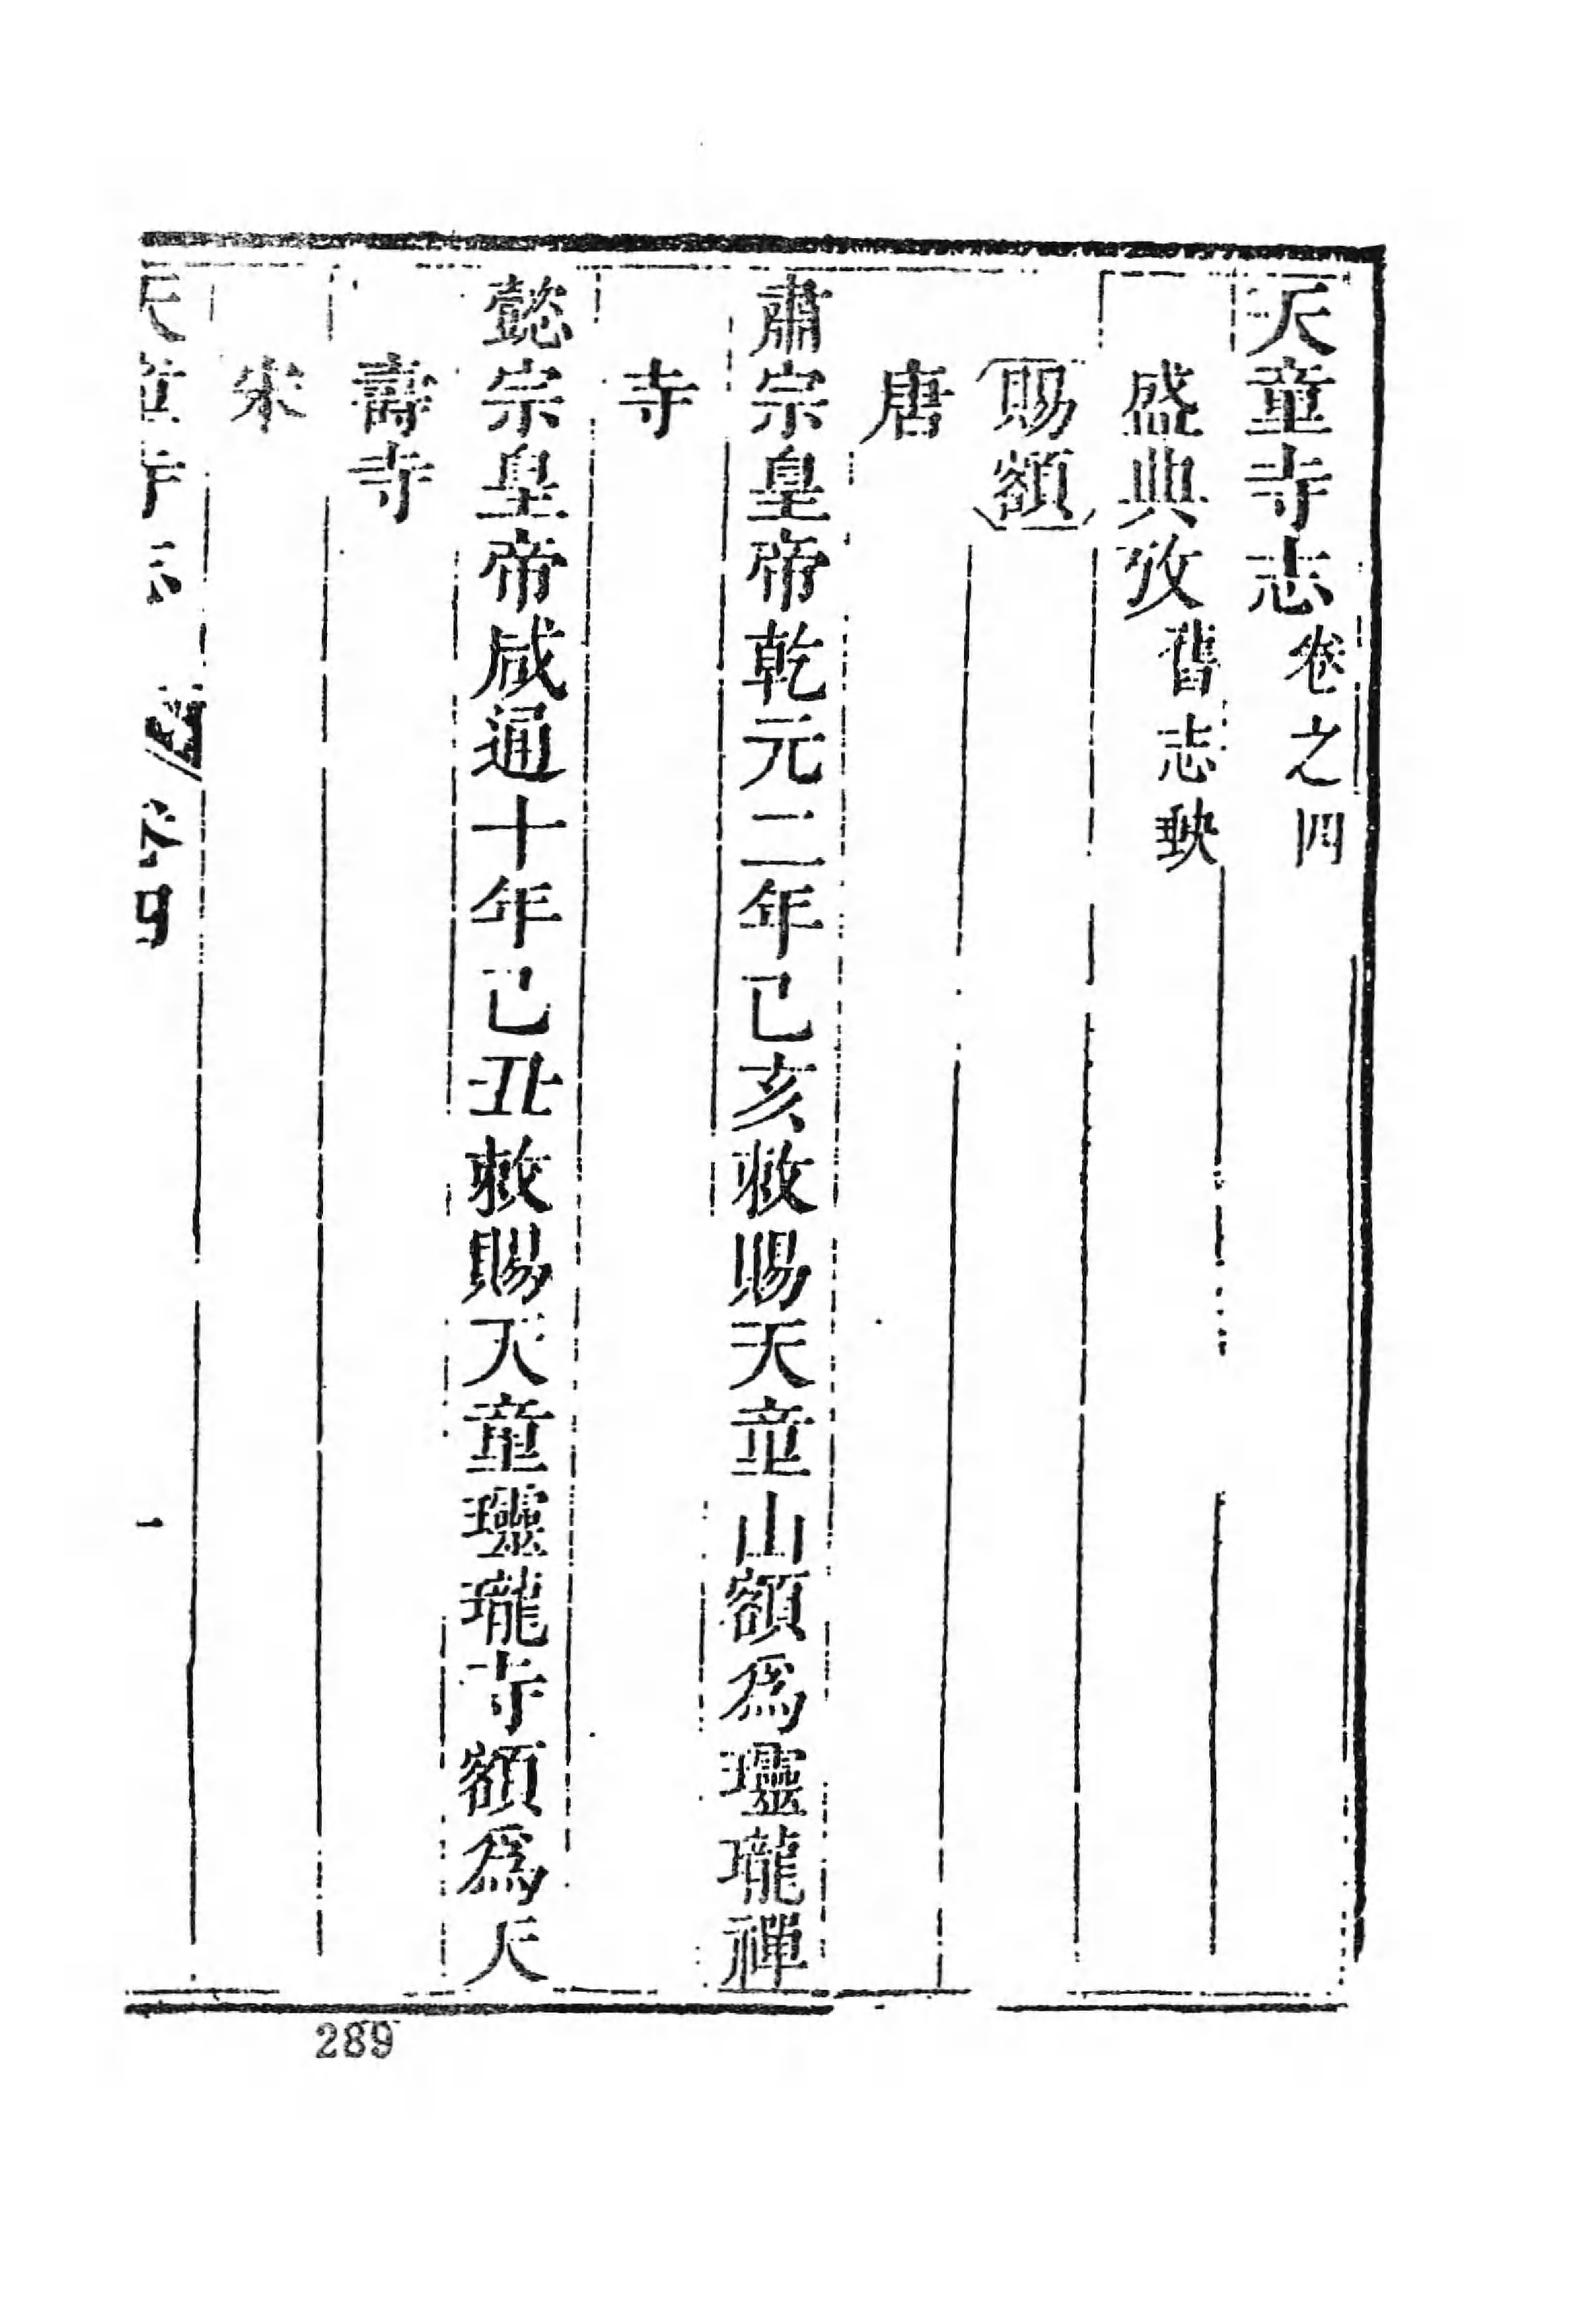 天童寺志卷之四
盛典攷舊志缺
賜額
唐
肅宗皇帝乾元二年己亥敕賜天童山額爲瓏瓏禪
寺
懿宗皇帝咸通十年己丑敕賜天童瓏瓏寺額爲天
壽寺
宋
天童寺志 卷四 一
289